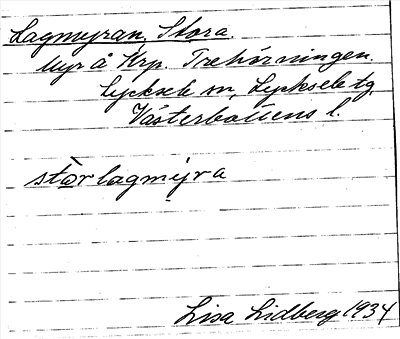 Lagmyran, Stora.
Myr å Krp. Trehörningen.
Lycksele sn, Lycksele tg,
Västerbottens l.
stòrlagmỵra
Lisa Lidberg 1934